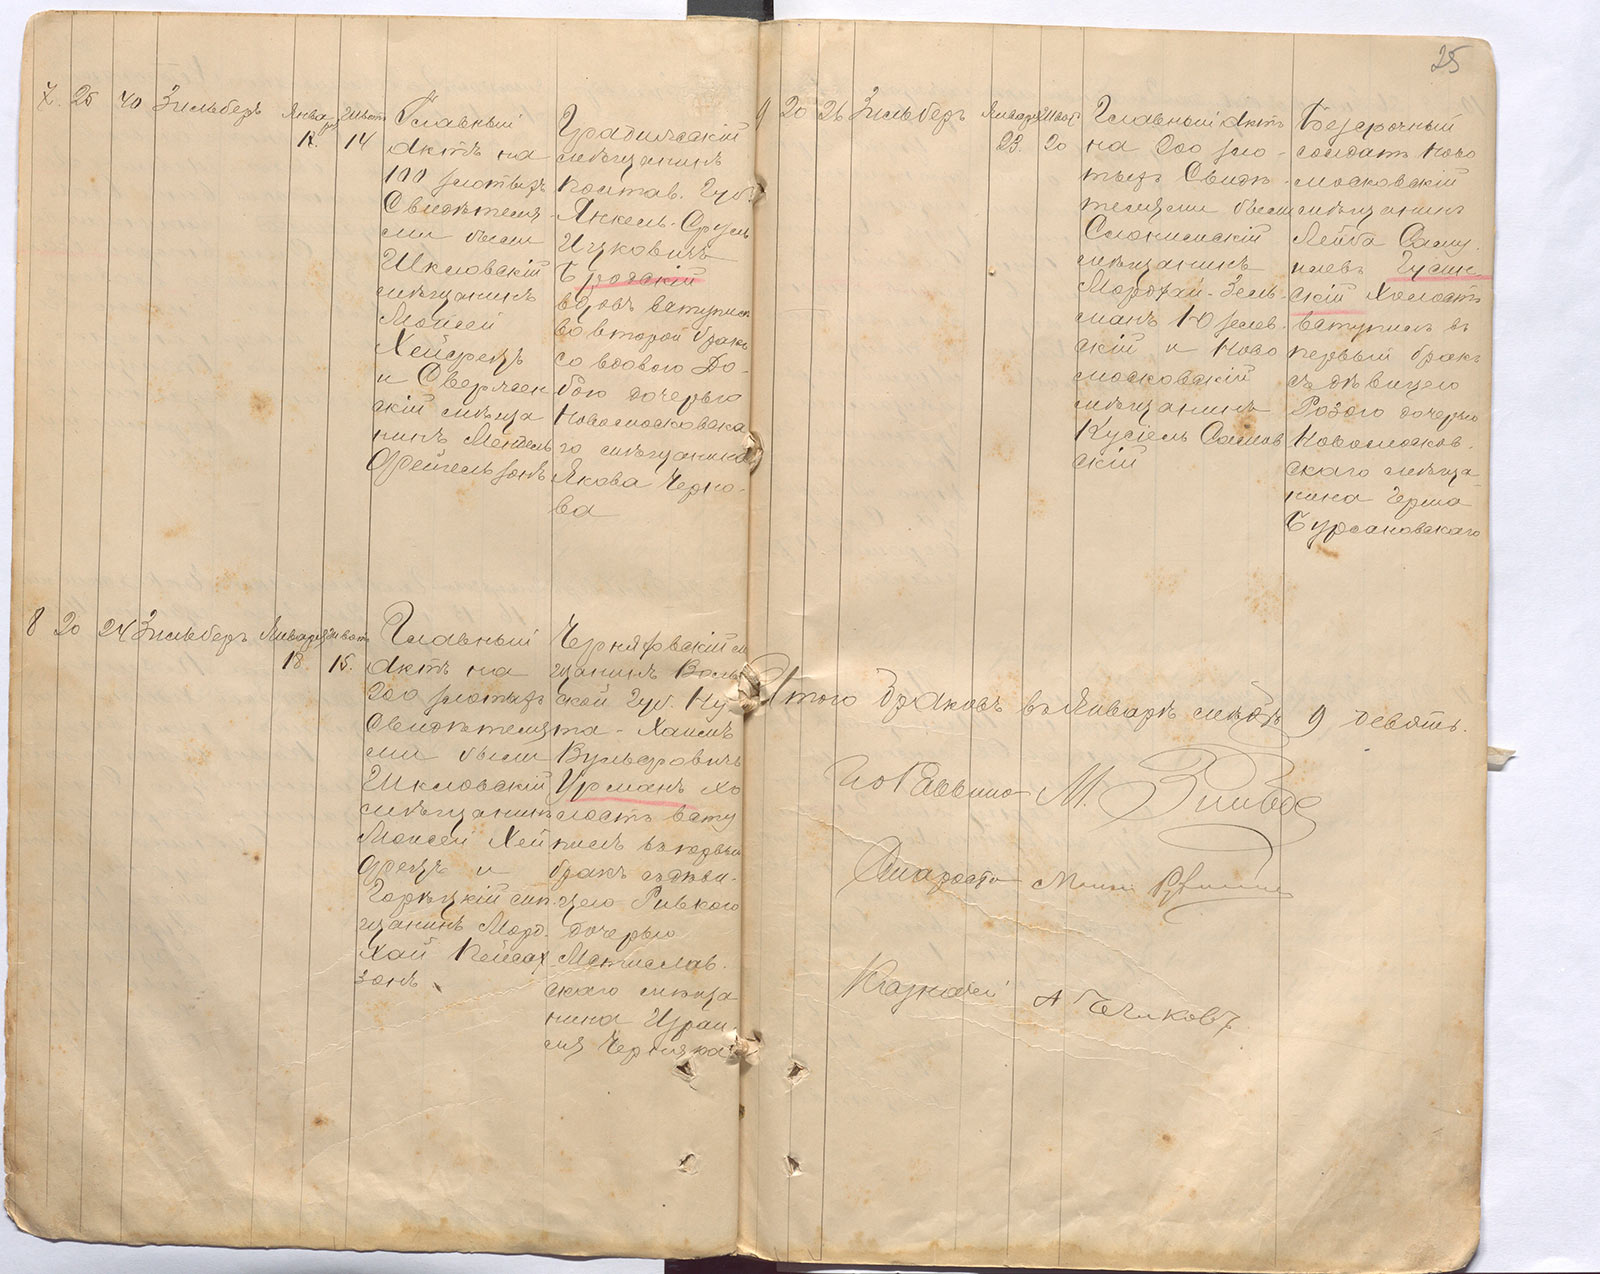 25
7. 25 40 Зильберъ
Января Шватъ
14
Главный
Актъ на
100 злотыхъ
Свидѣтеля-
ми были
Шкловскій
мѣщанинъ
Мойсей
Хейфецъ
и Сверженскій
мѣща
нинъ Мендель
Фейгельзонъ
Градижскій
мѣщанинъ
Полтав. Губ.
Янкель-Сруль
Ицковичъ
Бродскій
вдовъ вступилъ
во второй бракъ
со вдовою До-
бою дочерью
Новомосковска
го мѣщанина
Якова Черно-
ва
8 20 24 Зильберъ Января Шватъ
18. 15.
Главный
Актъ на
200 злотыхъ
Свидѣтеля
ми были
Шкловскій
мѣщанинъ
Мойсей Хей
фецъ и
Горецкій мѣ
щанинъ Морд-
хай Кейсах
зонъ
Черняховскій мѣ
щанинъ Волын
ской Губ. Ну
та-Хаимъ
Вульфовичъ
Урманъ хо
лостъ всту
пилъ въ первый
бракъ съ дѣви-
цею Ривкою
дочерью
Мстислав-
скаго мѣща
нина Израи
ля Черняка
9 20 26 Зильберъ Января Шватъ
23. 20
Главный Актъ
на 200 зло-
тыхъ Свидѣ-
телями были
Слонимскій
мѣщанинъ
Мордхай-Зель
манъ Юзелев
скій и Ново
московскій
мѣщанинъ
Кусіель Саслав
скій
Безсрочный
солдатъ Ново
московскій
мѣщанинъ
Лейба Саму-
илевъ Гусин-
скій Холостъ
вступилъ въ
первый бракъ
съ дѣвицею
Розою дочерью
Новомосков-
скаго мѣща-
нина Герша
Бурсановскаго
Итого Браковъ въ Январѣ мѣсяцѣ 9 девять.
И о Раввина М. Зильбер
Староста
Казначей А